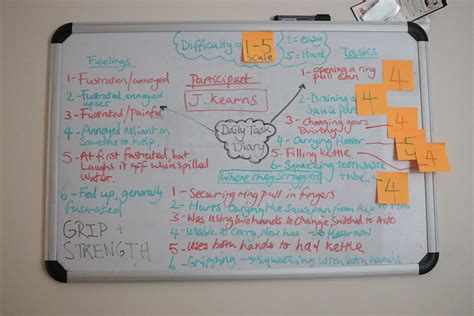 Difficulty = 1-5 scale
1 = easy
5 = Hard
Feelings
1 - Fustration/annoyed
2 - Fustrated, annoyed
upset
3 - Fustrated/Painful
4 - Annoyed reliant on
someone to help.
5 - At first frustrated, but
Laughs it off when spilled
Water.
6 - Fed up, generally
frustrated
GRIP +
STRENGTH
Participant
J. Kearns
Daily Task
Diary
Tasks
1 - opening a ring
pull can
2 - Draining a
Saucepan
3 - Changing gears
Driving
4 - Carrying Hoover
5 - Filling Kettle
6 - Squeezing toothpaste
tube
4
4
4
5
4
4
1 - Securing ring pull in fingers
2 - Hurts Carrying the Saucepan from
3 - Was using two hands to Change Switched to Auto
4 - Unable to Carry, Now has Hoover now
5 - Uses both hands to hold kettle
6 - Gripping → Squeezing with both hands